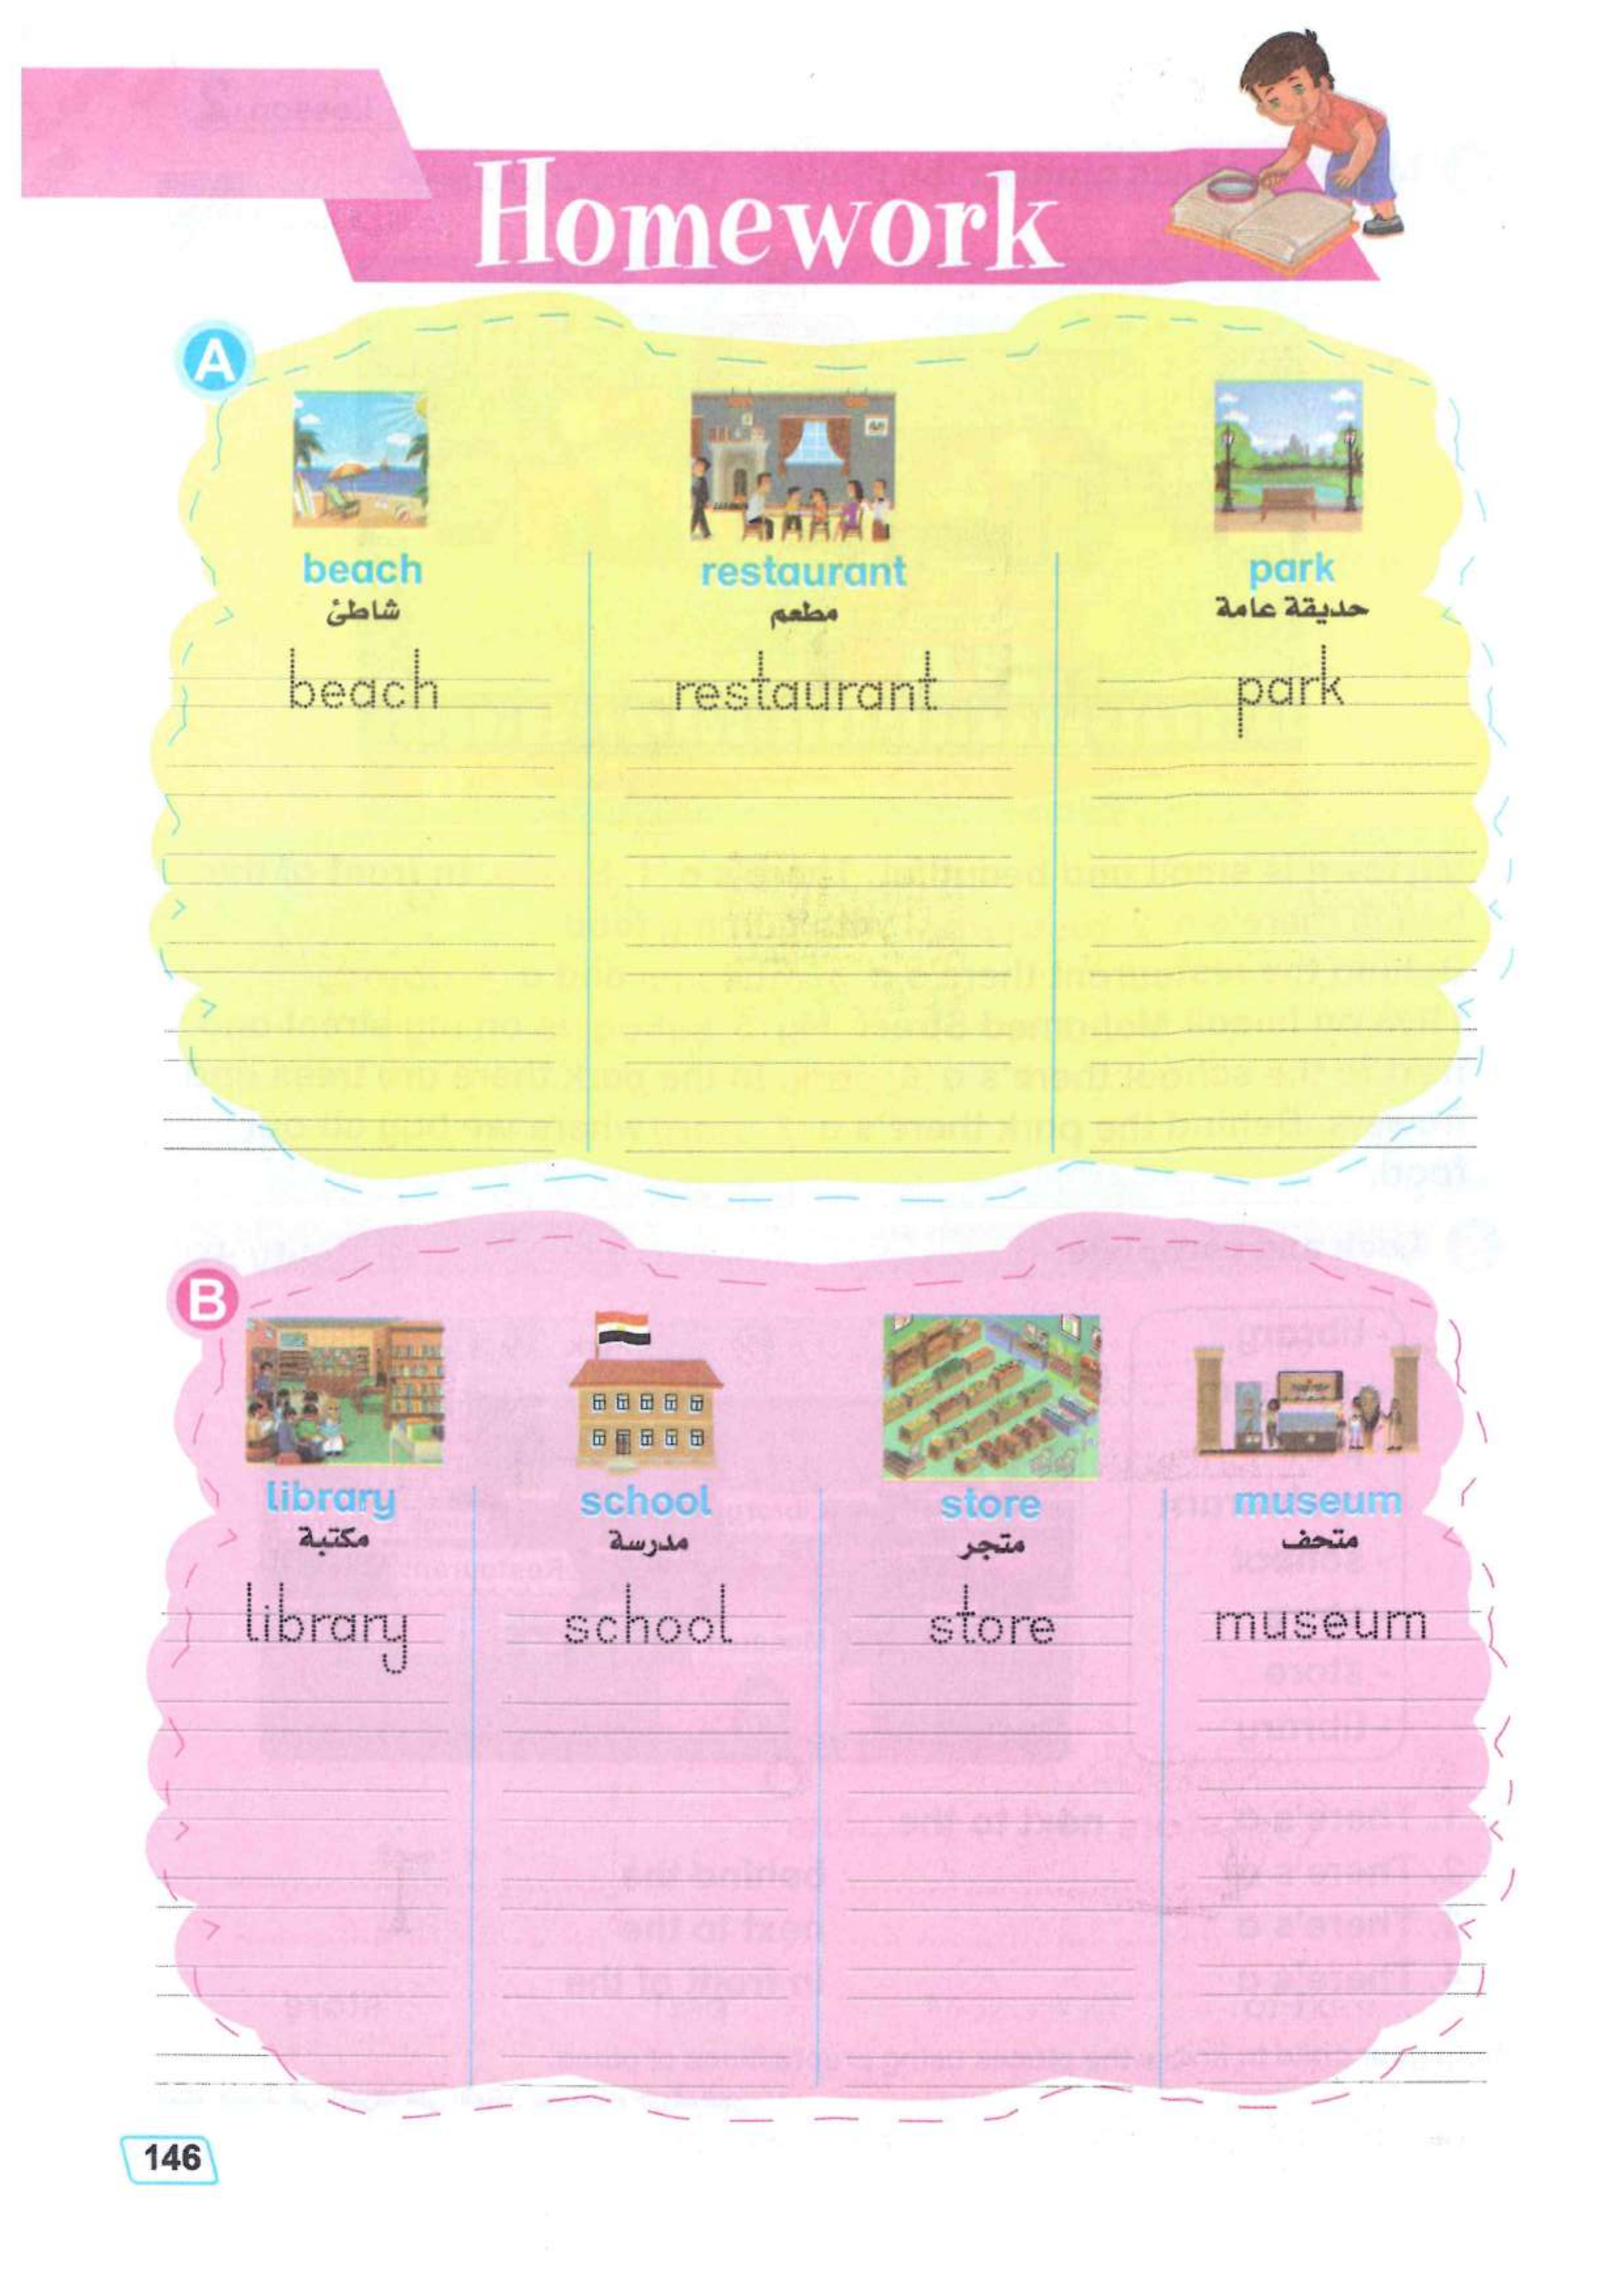 Homework
A
beach
شاطئ
beach
restaurant
مطعم
restaurant
park
حديقة عامة
park
B
library
مكتبة
library
school
مدرسة
school
store
متجر
store
museum
متحف
museum
146